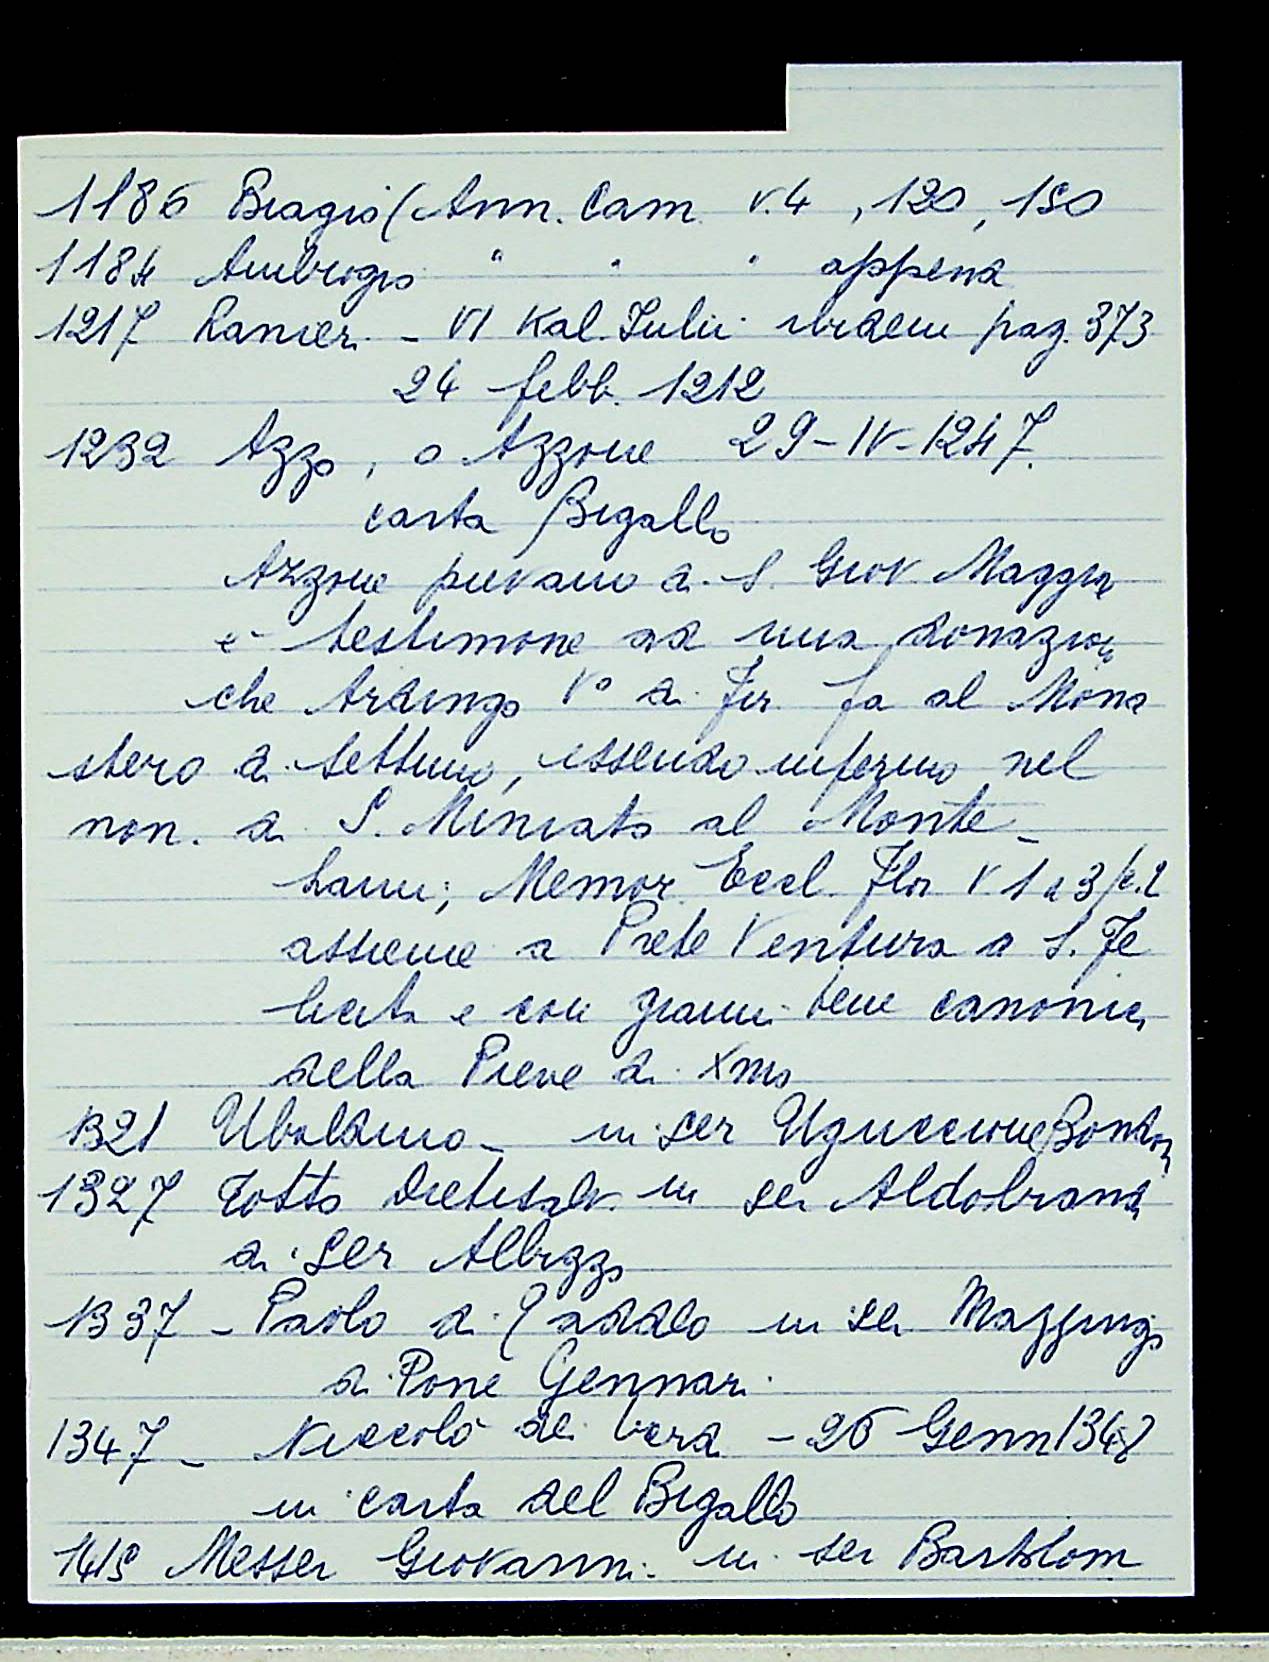 1186 Biagio (Ann. Cam. v. 4, 120, 150
1184 Ambrogio " " " append
1217 Ranieri - VI Kal. Iulii ibidem pag. 373
24 febb. 1212
1232 Azzo, o Azzone 29-IV-1247.
carta Bigallo
Azzone pievano di S. Giov Maggior
è testimone ad una donazion
che Ardingo Vo di Fir. fa al Mona
stero di Settimo, essendo infermo nel
mon. di S. Miniato al Monte -
Lami; Memor. Eccl. Flor V 1 a 3
assieme a Prete Ventura a S. Fe
licita e con bene canonici
della Pieve di
1321 Ubaldino - in ser Uguccione
1327 Totto Dietisalv. in ser Aldobrand
di ser Albizzo
1337 - Paolo di Taddeo in ser Mazzingo
di Pone Gennari
1347 - Niccolò di - 26 Genn 1348
in carta del Bigallo
Messer Giovanni in ser Bartolom